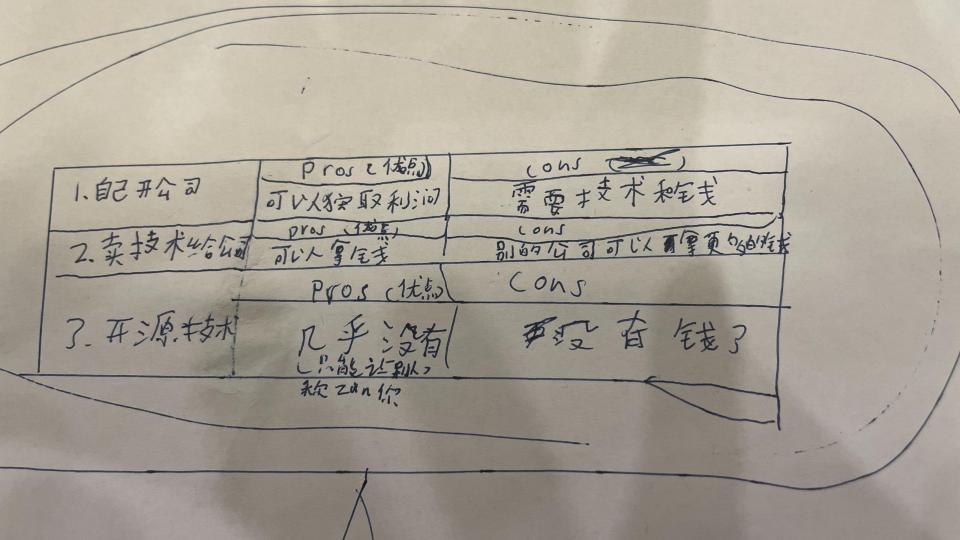 Pros (优点) cons
1.自己开公司 可以获取利润 需要技术和钱
pros (优点) cons
2.卖技术给公司 可以拿钱 别的公司可以拿更多的钱
Pros (优点) Cons
3.开源技术 几乎没有 没有钱了
(只能让别人
称zan你